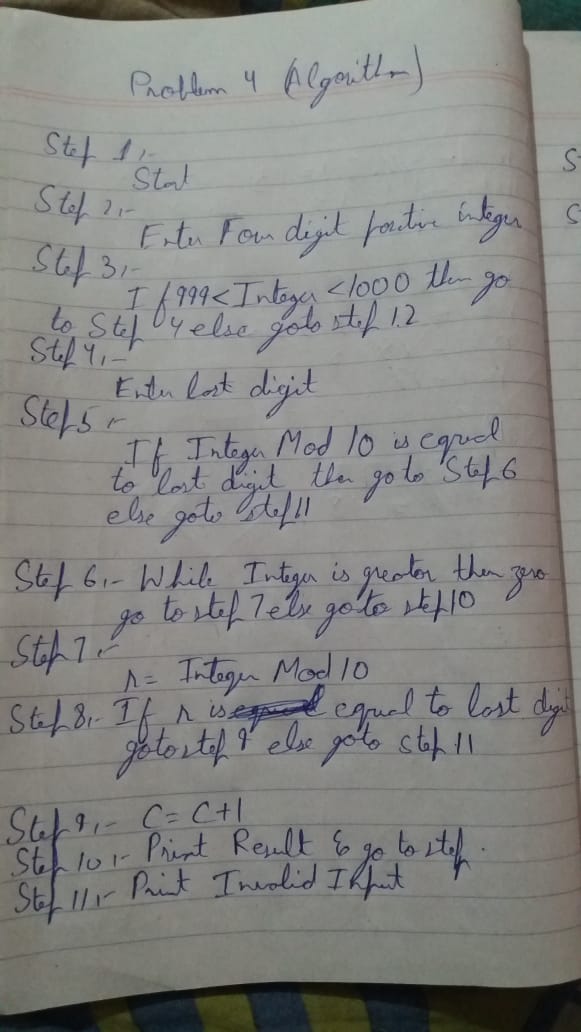 Problem 4 (Algorithm)
Step 1,-
Start
Step 2,-
Enter Four digit positive integer
Step 3,-
If 999 < Integer < 1000 then go
to Step 4 else goto step 12
Step 4,-
Enter last digit
Step 5,-
If Integer Mod 10 is equal
to last digit then go to Step 6
else goto step 11
Step 6,- While Integer is greater then zero
go to step 7 else go to step 10
Step 7,-
r = Integer Mod 10
Step 8,- If r is equal to last digit
goto step 9 else goto step 11
Step 9,- C = C+1
Step 10,- Print Result & go to step.
Step 11,- Print Invalid Input
S
S